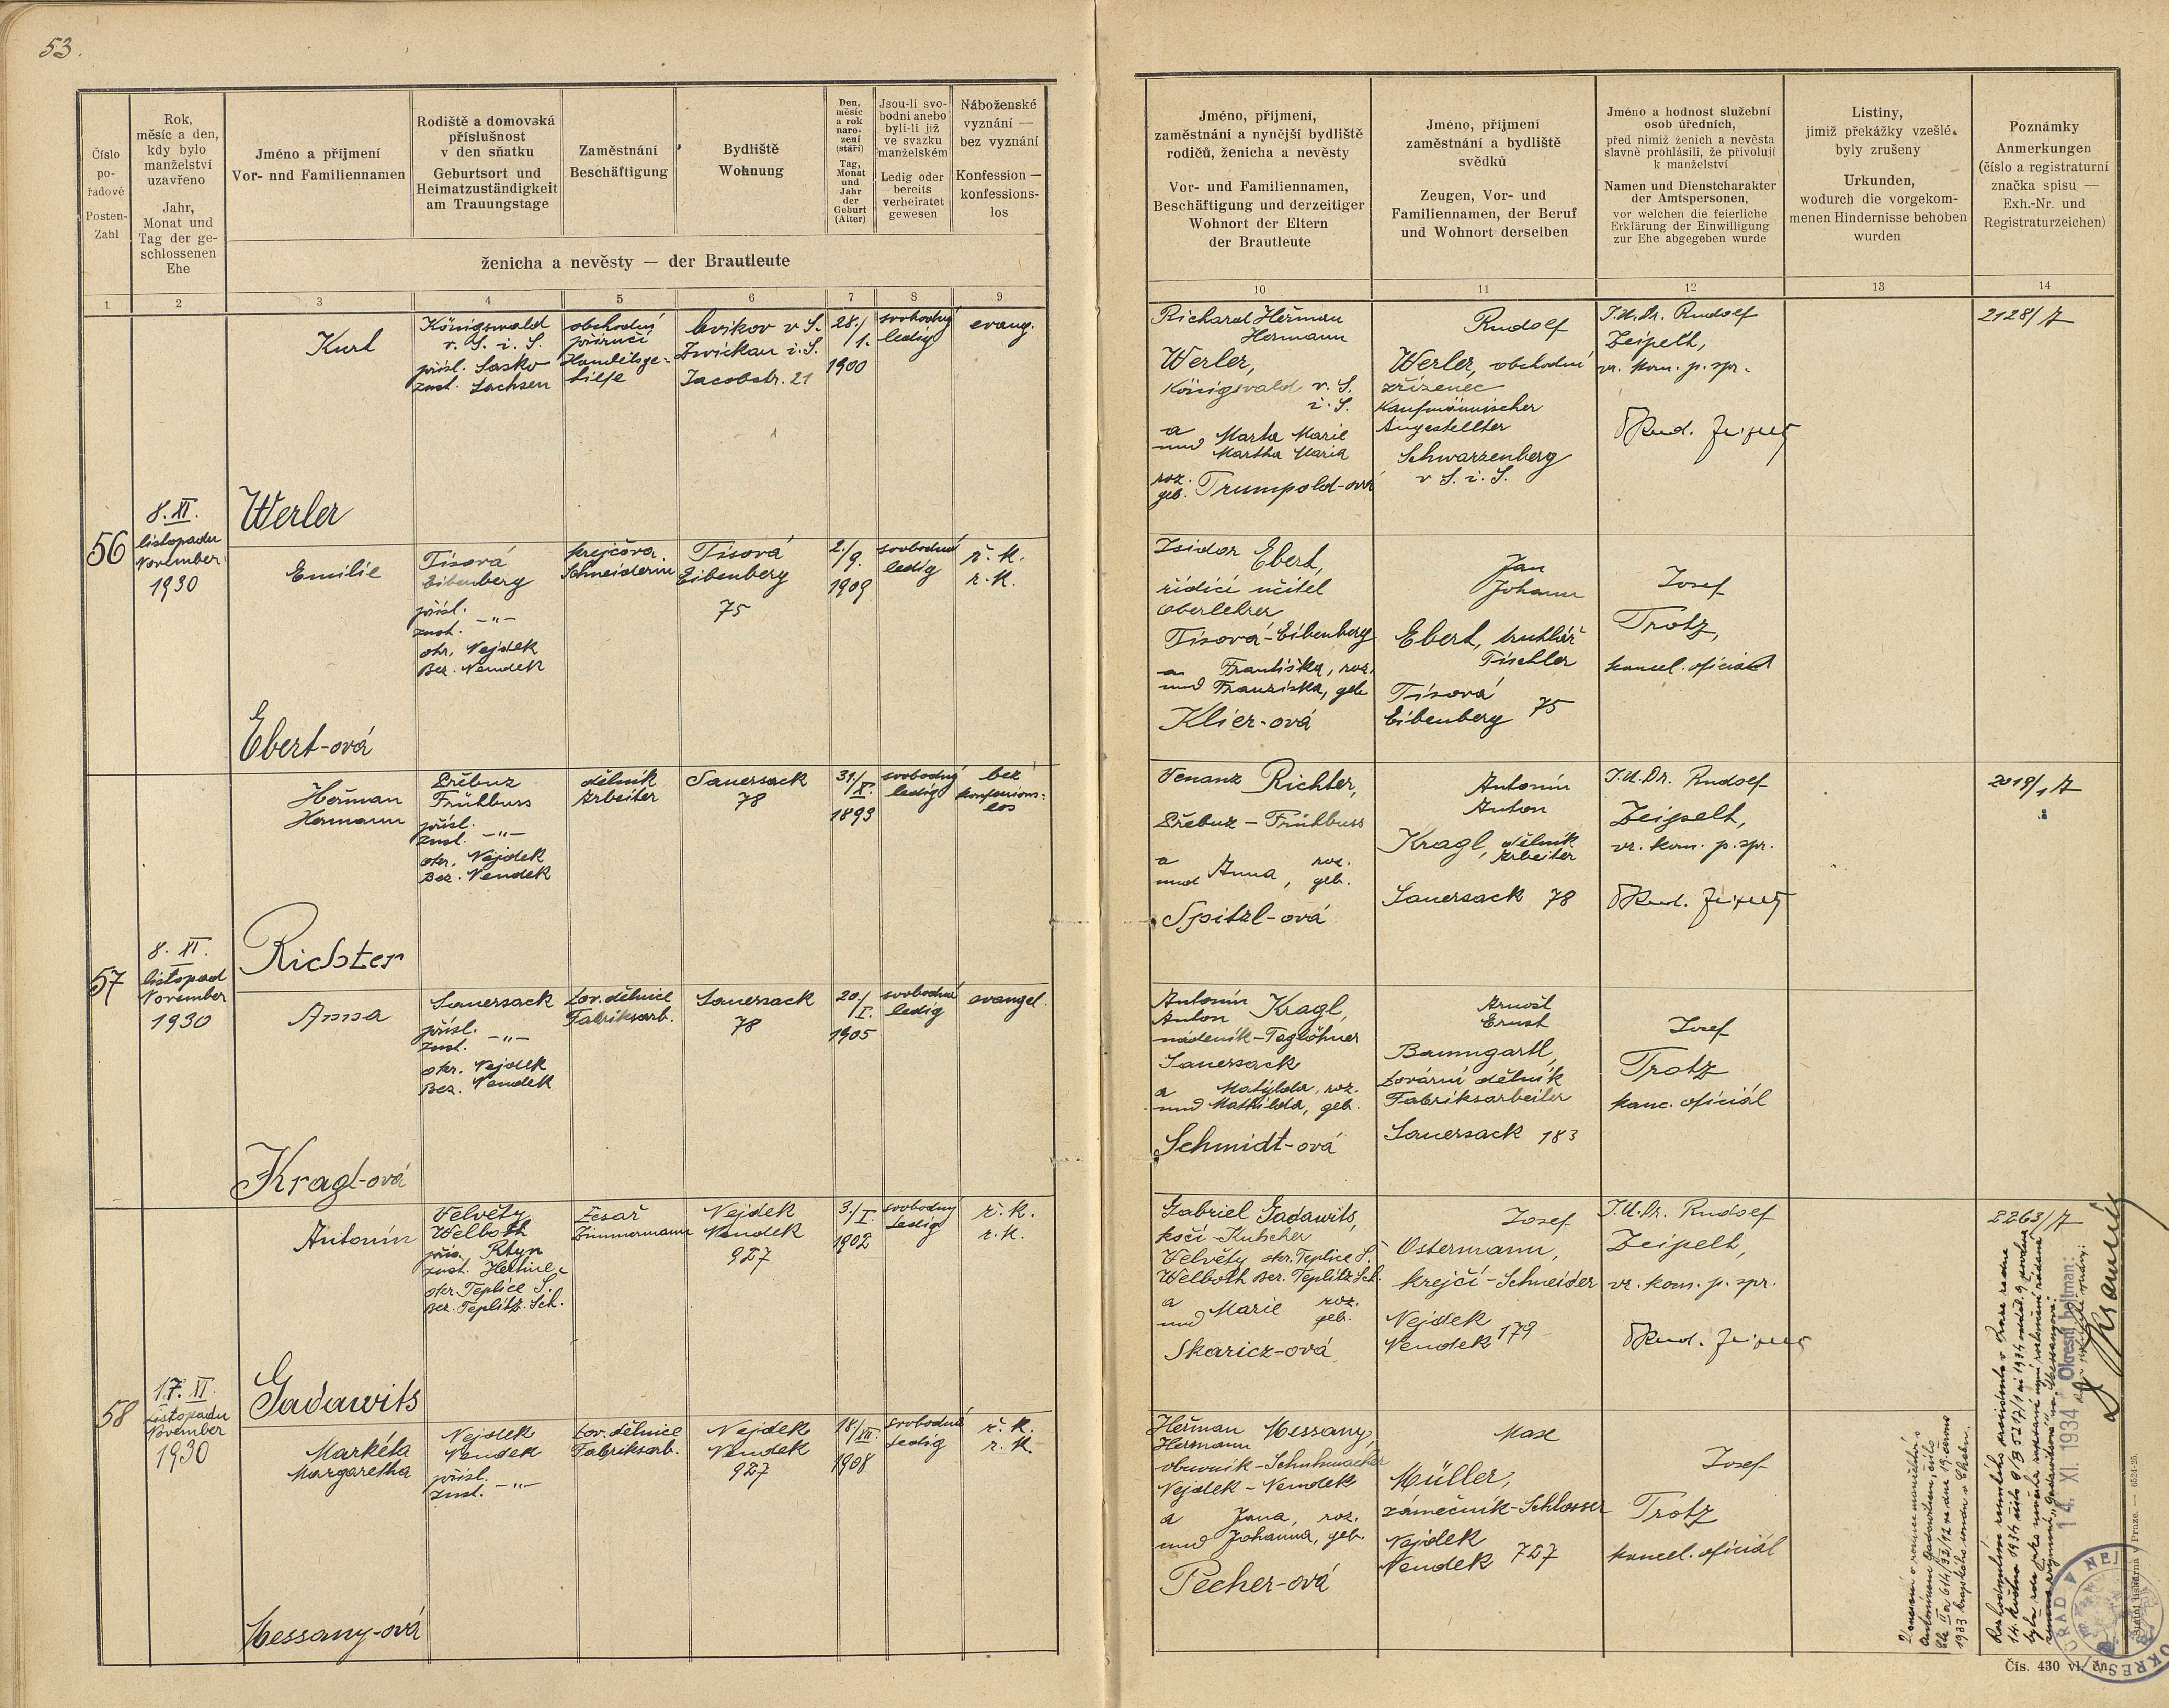 53.
Číslo
po-
řadové
Posten-
Zahl
Rok,
měsíc a den,
kdy bylo
manželství
uzavřeno
Jahr,
Monat und
Tag der ge-
schlossenen
Ehe
Jméno a příjmení
Vor- nnd Familiennamen
Rodiště a domovská
příslušnost
v den sňatku
Geburtsort und
Heimatzuständigkeit
am Trauungstage
Zaměstnání
Beschäftigung
Bydliště
Wohnung
Den,
měsíc
a rok
naro-
zení
(stáří)
Tag,
Monat
und
Jahr
der
Geburt
(Alter)
Jsou-li svo-
bodni anebo
byli-li již
ve svazku
manželském
Ledig oder
bereits
verheiratet
gewesen
Náboženské
vyznání —
bez vyznání
Konfession —
konfessions-
los
ženicha a nevěsty — der Brautleute
1 2 3 4 5 6 7 8 9
56
8. XI.
listopadu
November
1930
Kurt
Werler
Königswald
v. S. i. S.
přísl. Sasko
zust. Sachsen
obchodní
příručí
Handelsge-
hilfe
Cvikov v S.
Zwickau i. S.
Jacobstr. 21
28./
1.
1900
svobodný
ledig
evang.
Emilie
Ebert-ová
Tisová
Eibenberg
přísl.
zust. -"-
okr. Nejdek
Bez. Neudek
krejčová
Schneiderin
Tisová
Eibenberg
75
2./
9.
1909
svobodná
ledig
ř. k.
r. k.
57
8. XI.
listopad
November
1930
Heřman
Hermann
Richter
Přebuz
Frühbuss
přísl.
zust. -"-
okr. Nejdek
Bez. Neudek
dělník
Arbeiter
Sauersack
78
31./
X.
1893
svobodný
ledig
bez
konfessions-
los
Anna
Kragl-ová
Sauersack
přísl.
zust. -"-
okr. Nejdek
Bez. Neudek
tov. dělnice
Fabriksarb.
Sauersack
78
20./
I.
1905
svobodná
ledig
evangel.
58
17. XI.
listopadu
November
1930
Antonín
Gadawits
Velvěty
Welboth
přís. Rtyn
zust. Hertine
okr. Teplice Š.
Bez. Teplitz-Sch.
tesař
Zimmermann
Nejdek
Neudek
927
3./
I.
1902
svobodný
ledig
ř. k.
r. k.
Markéta
Margaretha
Messany-ová
Nejdek
Neudek
přísl.
zust. -"-
tov. dělnice
Fabriksarb.
Nejdek
Neudek
927
18/
XII.
1908
svobodná
ledig
ř. k.
r. k.
Jméno, příjmení,
zaměstnání a nynější bydliště
rodičů, ženicha a nevěsty
Vor- und Familiennamen,
Beschäftigung und derzeitiger
Wohnort der Eltern
der Brautleute
Jméno, příjmení
zaměstnání a bydliště
svědků
Zeugen, Vor- und
Familiennamen, der Beruf
und Wohnort derselben
Jméno a hodnost služební
osob úředních,
před nimiž ženich a nevěsta
slavně prohlásili, že přivolují
k manželství
Namen und Dienstcharakter
der Amtspersonen,
vor welchen die feierliche
Erklärung der Einwilligung
zur Ehe abgegeben wurde
Listiny,
jimiž překážky vzešlé
byly zrušeny
Urkunden,
wodurch die vorgekom-
menen Hindernisse behoben
wurden
Poznámky
Anmerkungen
(číslo a registraturní
značka spisu —
Exh.-Nr. und
Registraturzeichen)
10 11 12 13 14
Richard Heřman
Hermann
Werler,
Königsvald v. S.
i. S.
a
und Marta Marie
Martha Maria
roz.
geb. Trumpold-ová
Rudolf
Werler, obchodní
zřízenec
Kaufmännischer
Angestellter
Schwarzenberg
v S. i. S.
J.U.Dr. Rudolf
Zeipelt,
vr. kom. p. spr.
Rud. Zeipelt
2128/7
Isidor Ebert,
řídící učitel
Oberlehrer
Tisová-Eibenberg
a Františka, roz.
und Franziska, geb.
Klier-ová
Jan
Johann
Ebert, truhlář
Tischler
Tisová
Eibenberg 75
Josef
Trotz,
kancel. oficiál
Venanz Richter,
Přebuz - Frühbuss
a
und Anna, roz.
geb.
Spitzl-ová
Antonín
Anton
Kragl, dělník
Arbeiter
Sauersack 78
J.U.Dr. Rudolf
Zeipelt,
vr. kom. p. spr.
Rud. Zeipelt
2019/1 7
Antonín
Anton Kragl,
nádeník-Taglöhner
Sauersack
a Matylda, roz.
und Mathilda, geb.
Schmidt-ová
Arnošt
Ernst
Baumgartl,
tovární dělník
Fabriksarbeiter
Sauersack 183
Josef
Trotz
kanc. oficiál
Gabriel Gadawits,
kočí-Kutscher
Velvěty okr. Teplice Š.
Welboth Bez. Teplitz Sch.
a
und Marie roz.
geb.
Skaricz-ová
Josef
Ostermann,
krejčí-Schneider
Nejdek
Neudek 179
J.U.Dr. Rudolf
Zeipelt,
vr. kom. p. spr.
Rud. Zeipelt
2263/7
Heřman Messany,
Hermann
obuvník-Schuhmacher
Nejdek-Neudek
a Jana, roz.
und Johanna, geb.
Pecher-ová
Max
Müller,
zámečník-Schlosser
Nejdek
Neudek 727
Josef
Trotz
kancel. oficiál
Antonínem Gadawitsem, čísl.
1933 krajského soudu v Chebu.
14. XI. 1934
Okresní hejtman:
Státní tiskárna v Praze. — 6524-25.
Čís. 430 vl. čn.